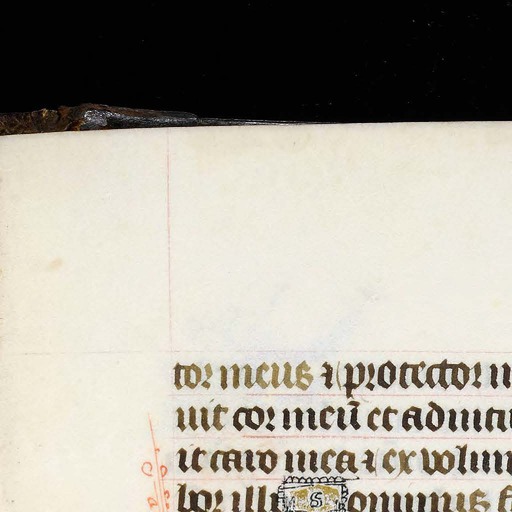 tor meus ⁊ protector
uit cor meū et adiutu
it caro mea ⁊ ex volun
bor illi Dominus